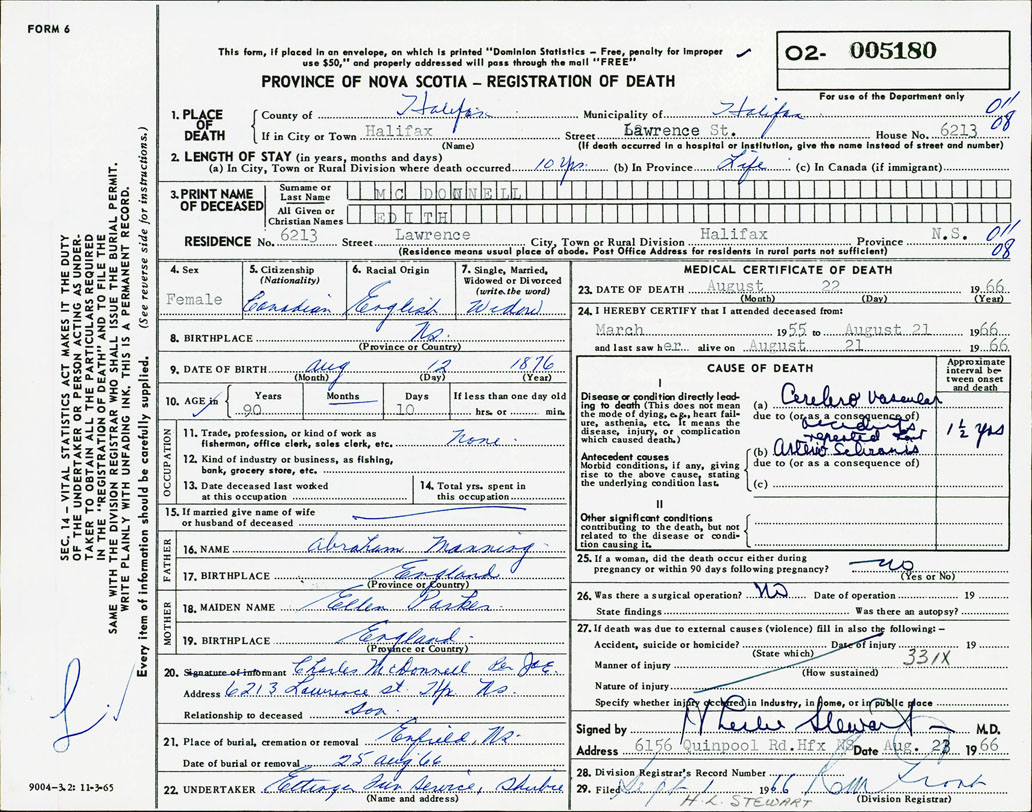 FORM 6
This form, if placed in an envelope, on which is printed "Dominion Statistics – Free, penalty for improper
use $50," and properly addressed will pass through the mail "FREE"
PROVINCE OF NOVA SCOTIA – REGISTRATION OF DEATH
02- 005180
For use of the Department only
011
08
1. PLACE OF DEATH
County of Halifax Municipality of Halifax
If in City or Town Halifax Street Lawrence St. House No. 6213
(Name) (If death occurred in a hospital or institution, give the name instead of street and number)
2. LENGTH OF STAY (in years, months and days)
(a) In City, Town or Rural Division where death occurred 10 yrs. (b) In Province Life (c) In Canada (if immigrant)
3. PRINT NAME OF DECEASED
Surname or Last Name MC DONNELL
All Given or Christian Names EDITH
RESIDENCE No. 6213 Street Lawrence City, Town or Rural Division Halifax Province N.S.
(Residence means usual place of abode. Post Office Address for residents in rural parts not sufficient)
011
08
4. Sex
Female
5. Citizenship
(Nationality)
Canadian
6. Racial Origin
English
7. Single, Married,
Widowed or Divorced
(write the word)
Widow
8. BIRTHPLACE Ns.
(Province or Country)
9. DATE OF BIRTH Aug 12 1876
(Month) (Day) (Year)
10. AGE in Years Months Days If less than one day old
90 10 hrs. or min.
OCCUPATION
11. Trade, profession, or kind of work as
fisherman, office clerk, sales clerk, etc. None.
12. Kind of industry or business, as fishing,
bank, grocery store, etc.
13. Date deceased last worked
at this occupation
14. Total yrs. spent in
this occupation
15. If married give name of wife
or husband of deceased
FATHER
16. NAME Abraham Manning.
17. BIRTHPLACE England
(Province or Country)
MOTHER
18. MAIDEN NAME Ellen Parker.
19. BIRTHPLACE England.
(Province or Country)
20. Signature of informant Charles McDonnell Per J.G.E.
Address 6213 Lawrence st. Hfx. Ns.
Relationship to deceased son.
21. Place of burial, cremation or removal Enfield, Ns.
Date of burial or removal 25 Aug 66
22. UNDERTAKER Ettinger Fun Service,
(Name and address)
MEDICAL CERTIFICATE OF DEATH
23. DATE OF DEATH August 22 1966
(Month) (Day) (Year)
24. I HEREBY CERTIFY that I attended deceased from:
March 1955 to August 21 1966
and last saw her alive on August 21 1966
CAUSE OF DEATH
Approximate
interval be-
tween onset
and death
I
Disease or condition directly lead-
ing to death (This does not mean
the mode of dying, e.g., heart fail-
ure, asthenia, etc. It means the
disease, injury, or complication
which caused death.)
(a) Cerebro vascular
due to (or as a consequence of)
accidents
repeated
1 ½ yrs
Antecedent causes
Morbid conditions, if any, giving
rise to the above cause, stating
the underlying condition last.
(b) Arterio Sclerosis
due to (or as a consequence of)
(c)
II
Other significant conditions
contributing to the death, but not
related to the disease or condi-
tion causing it.
25. If a woman, did the death occur either during
pregnancy or within 90 days following pregnancy? no
(Yes or No)
26. Was there a surgical operation? No Date of operation 19
State findings Was there an autopsy?
27. If death was due to external causes (violence) fill in also the following: –
Accident, suicide or homicide? Date of injury 19
(State which)
Manner of injury 331X
(How sustained)
Nature of injury
Specify whether injury occurred in Industry, in home, or in public place
Signed by H Leslie Stewart M.D.
Address 6156 Quinpool Rd. Hfx NS Date Aug. 23 1966
28. Division Registrar's Record Number
29. Filed Sept 1 1966
(Division Registrar)
H. L. STEWART
SEC. 14 – VITAL STATISTICS ACT MAKES IT THE DUTY
OF THE UNDERTAKER OR PERSON ACTING AS UNDER-
TAKER TO OBTAIN ALL THE PARTICULARS REQUIRED
IN THE "REGISTRATION OF DEATH" AND TO FILE THE
SAME WITH THE DIVISION REGISTRAR WHO SHALL ISSUE THE BURIAL PERMIT.
WRITE PLAINLY WITH UNFADING INK. THIS IS A PERMANENT RECORD.
Every item of information should be carefully supplied. (See reverse side for instructions.)
9004-3.2: 11-3-65